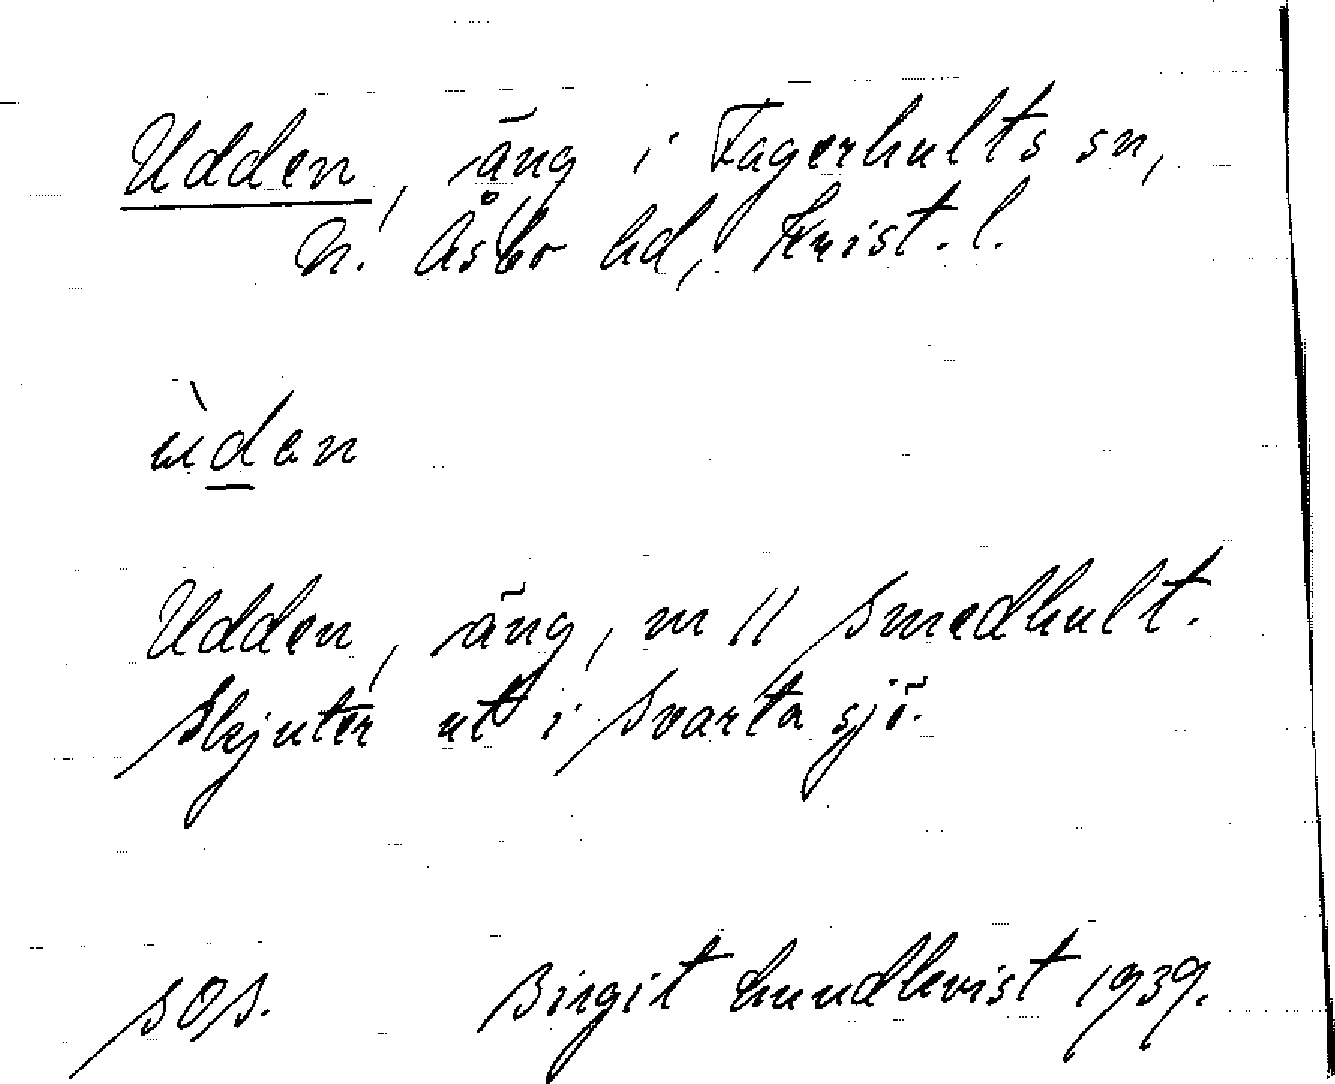 Udden, äng i Fagerhults sn,
N. Åsbo hd, Krist. l.
ùden
Udden, äng, m // Smedhult.
Skjuter ut i Svarta sjö.
SOS. Birgit Lundkvist 1939.